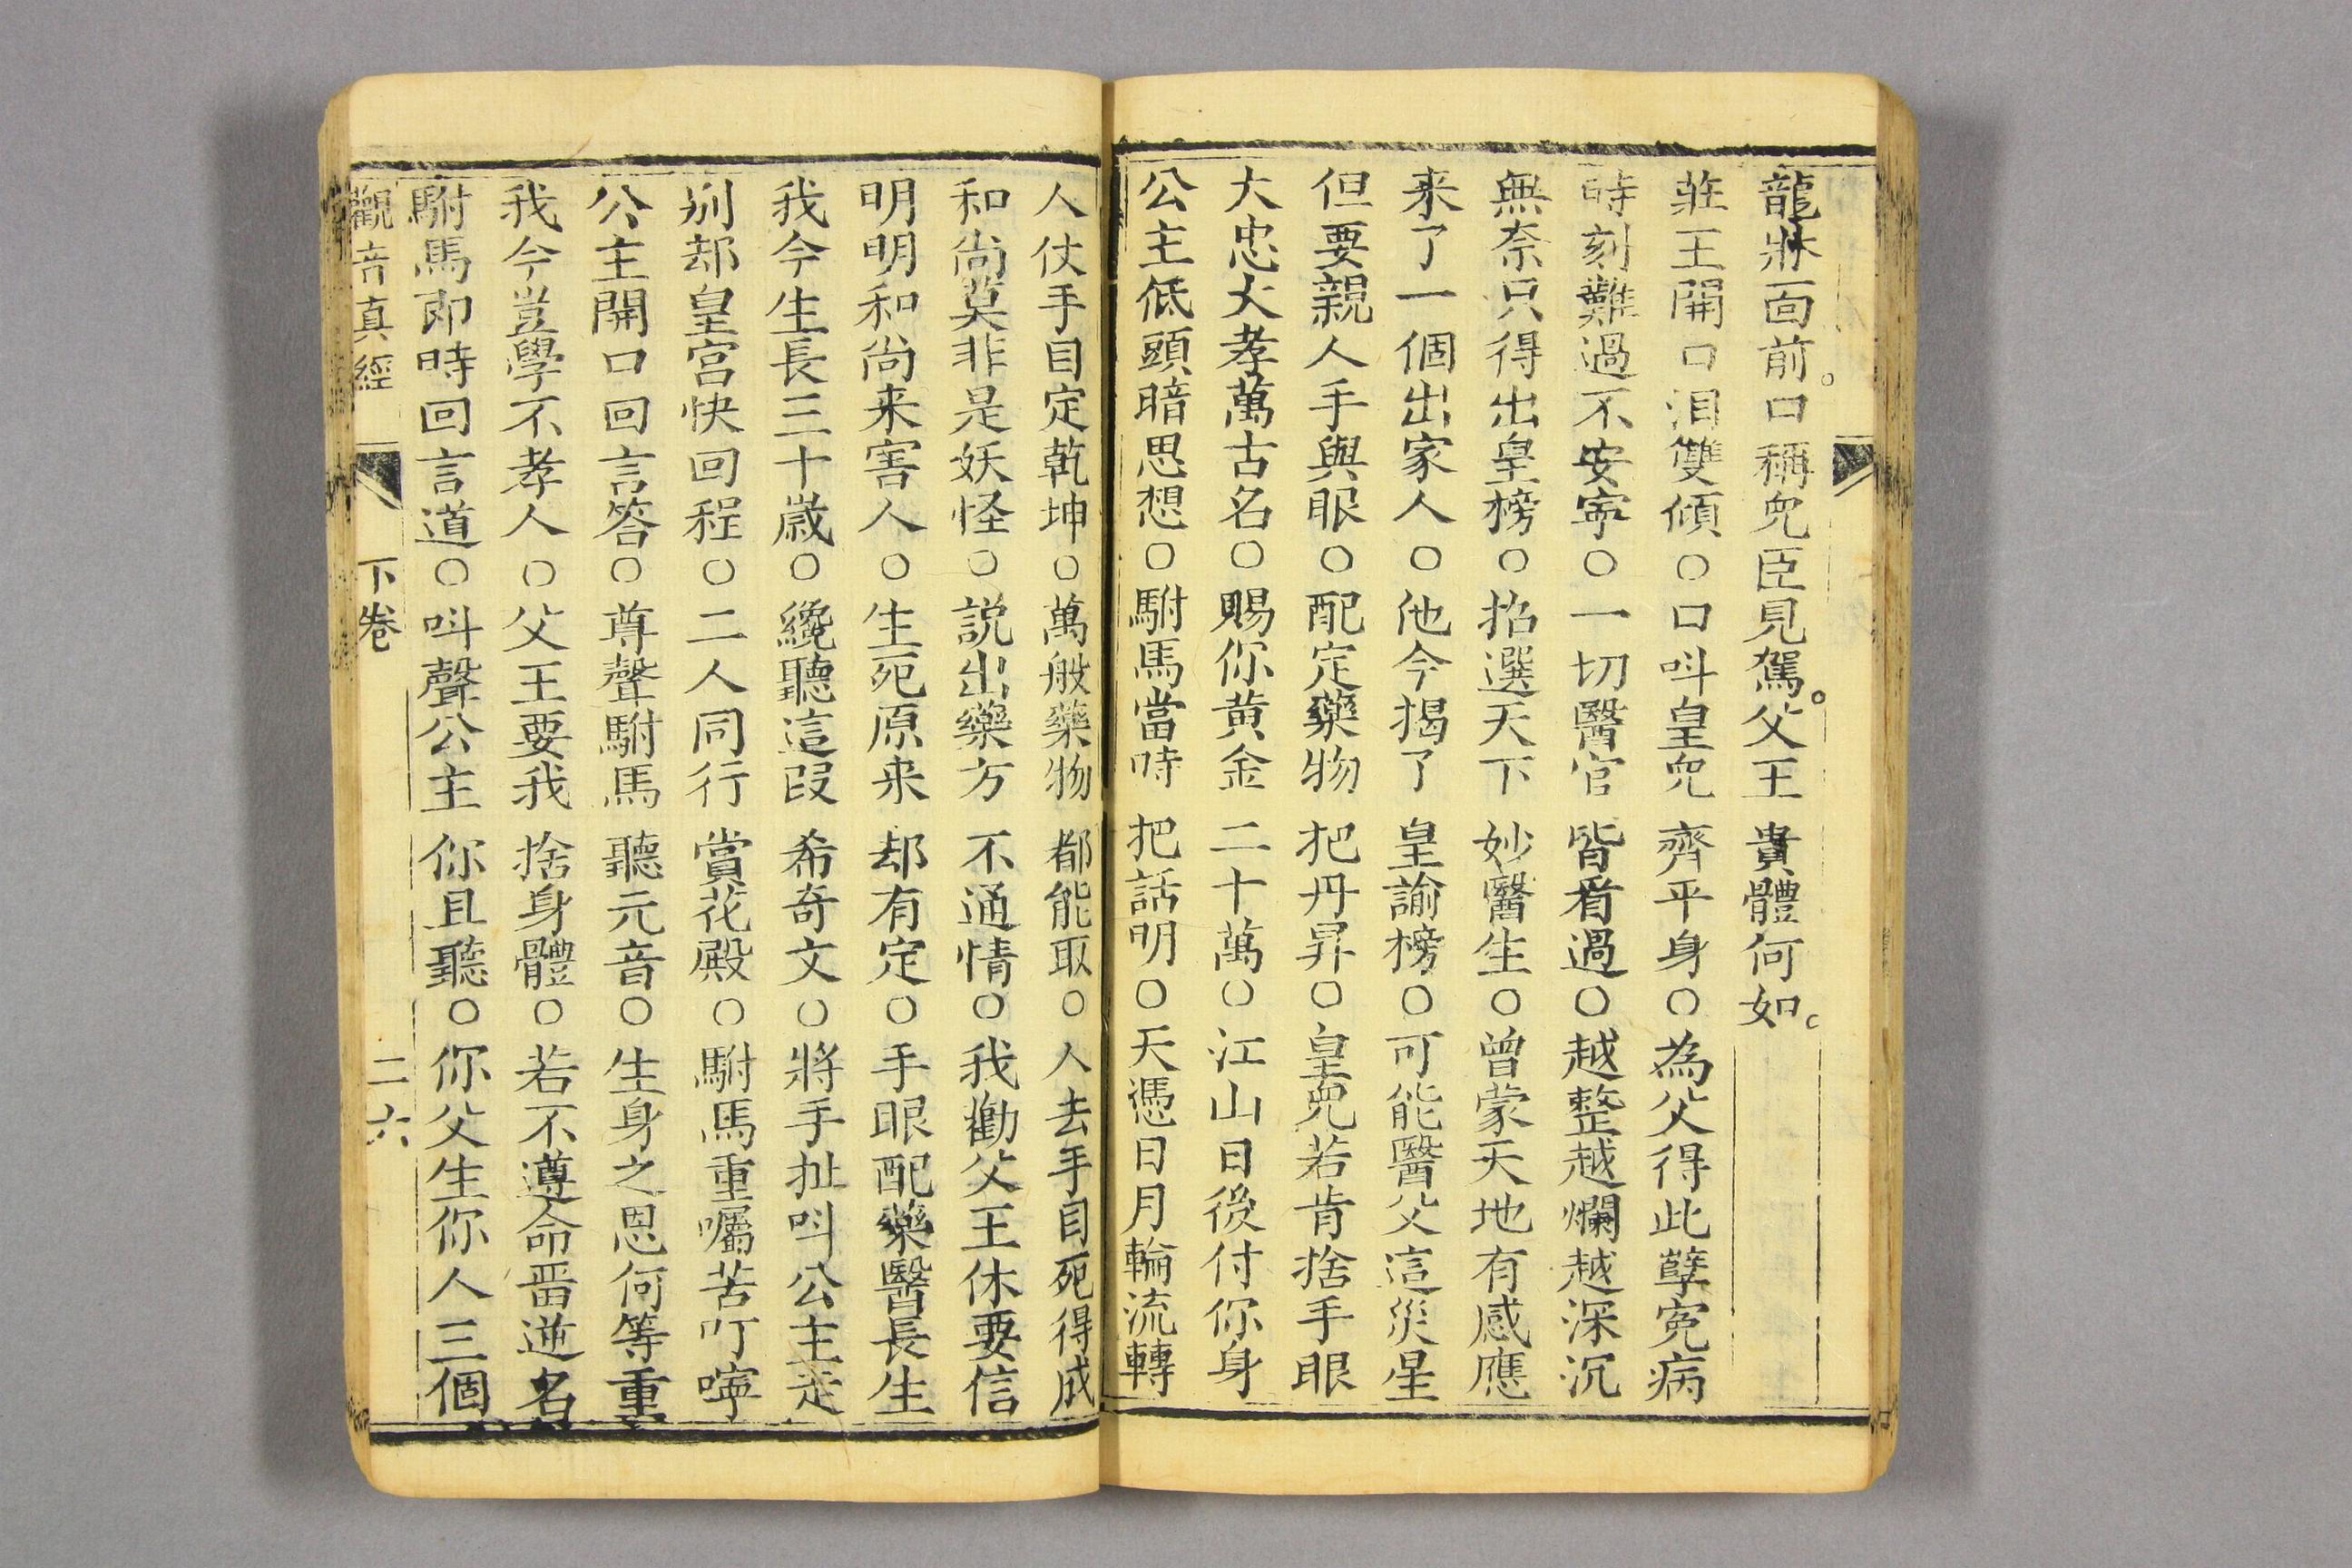 龍牀面前。口稱兒臣見駕。父王貴體何如。
莊王開口泪雙傾○口呌皇兒齊平身○為父得此孽寃病
時刻難過不安寧○一切醫官皆看過○越整越爛越深沉
無奈只得出皇榜○招選天下妙醫生○曾蒙天地有感應
来了一個出家人○他今揭了皇諭榜○可能醫父這災星
但要親人手與眼○配定藥物把丹昇○皇兒若肯捨手眼
大忠大孝萬古名○賜你黄金二十萬○江山日後付你身
公主低頭暗思想○駙馬當時把話明○天憑日月輪流轉
人仗手目定乾坤○萬般藥物都能取○人去手目死得成
和尚莫非是妖怪○説出藥方不通情○我勸父王休要信
明明和尚来害人○生死原来却有定○手眼配藥醫長生
我今生長三十歲○纔聽這段希奇文○將手扯呌公主走
别却皇宫快回程○二人同行賞花殿○駙馬重囑苦叮嚀
公主開口回言答○尊聲駙馬聽元音○生身之恩何等重
我今豈學不孝人○父王要我捨身體○若不遵命畱逆名
駙馬即時回言道○呌聲公主你且聽○你父生你人三個
觀音真經 下卷 二六